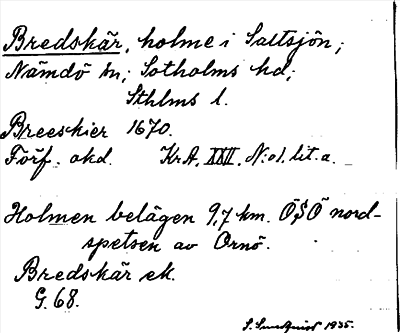 Bredskär, holme i Saltsjön;
Nämdö sn; Sotholms hd;
Sthlms l.
Breeskier 1670.
Förf. okd. KrA. XXII. N:o1. lit. a.
Holmen belägen 9,7 km. ÖSÖ nord-
spetsen av Ornö.
Bredskär ek.
G. 68.
S. Sundqvist 1935.